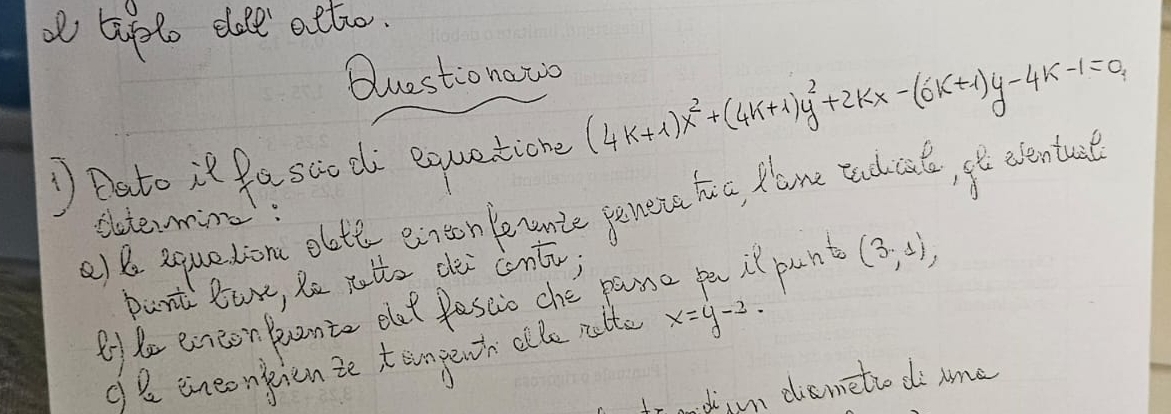 il triplo dell'altro.
Questionario
1) Dato il fascio di equazione (4K+1)x²+(4K+1)y²+2Kx-(6K+1)y-4K-1=0,
determina:
a) le equazioni delle circonferenze generatrici, l'asse radicale, gli eventuali
punti base, la retta dei centri;
b) la circonferenza del fascio che passa per il punto (3;1),
c) le circonferenze tangenti alla retta x=y-2.
di un diametro di una